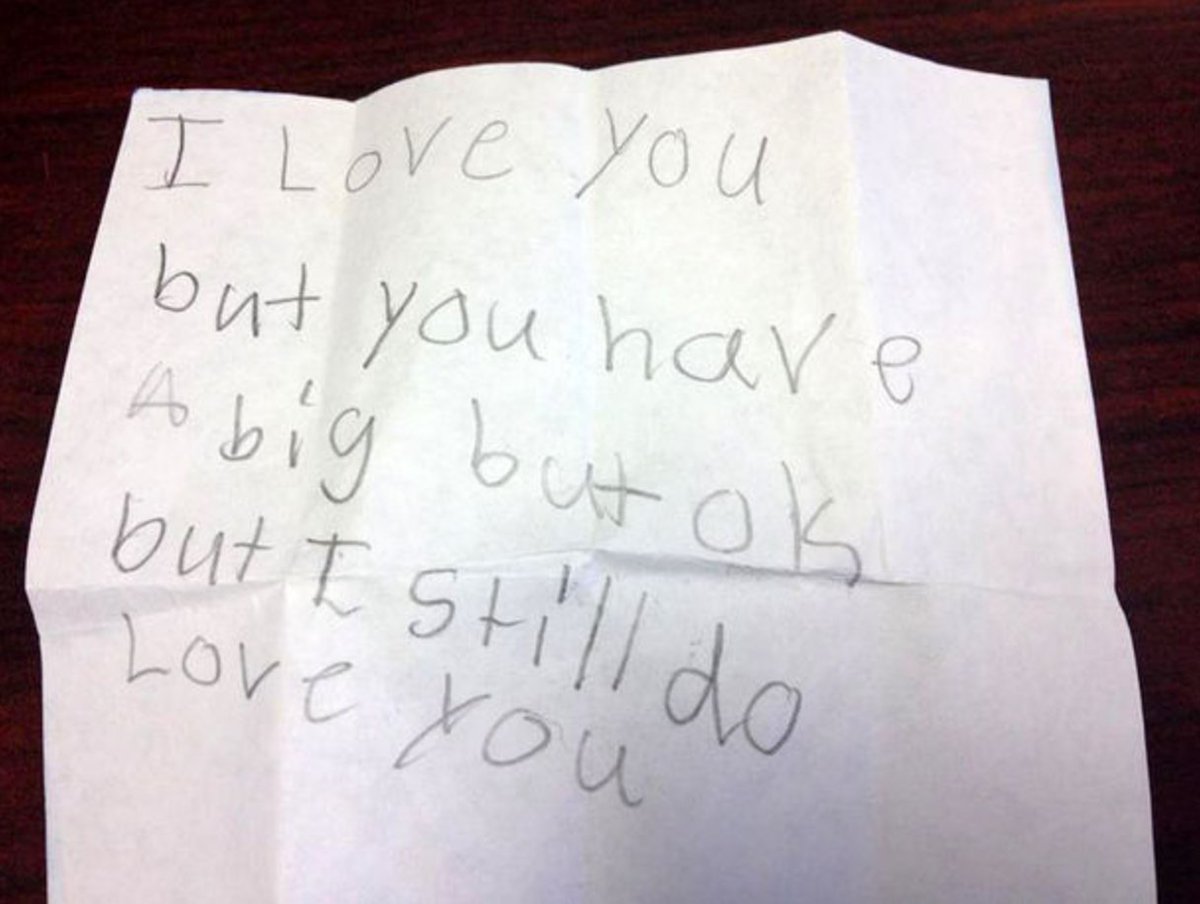 I Love you
but you have
A big but ok
but I still do
Love you